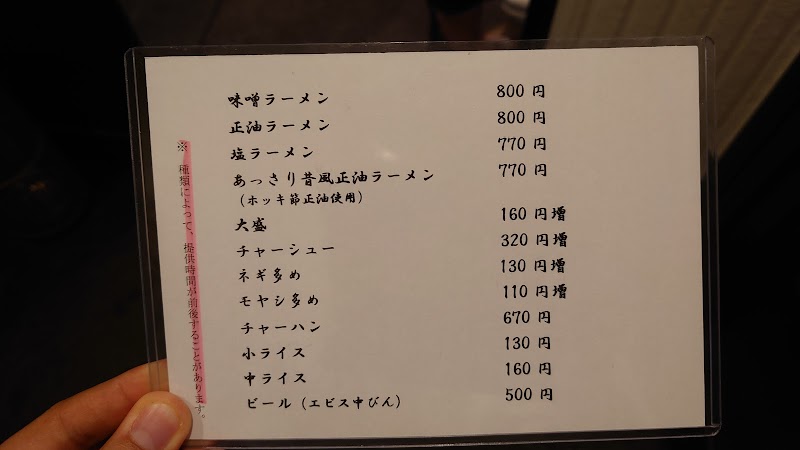 味噌ラーメン 800 円
正油ラーメン 800 円
塩ラーメン 770 円
あっさり昔風正油ラーメン 770 円
(ホッキ節正油使用)
大盛 160 円増
チャーシュー 320 円増
ネギ多め 130 円増
モヤシ多め 110 円増
チャーハン 670 円
小ライス 130 円
中ライス 160 円
ビール (エビス中びん) 500 円
※ 種類によって、提供時間が前後することがあります。